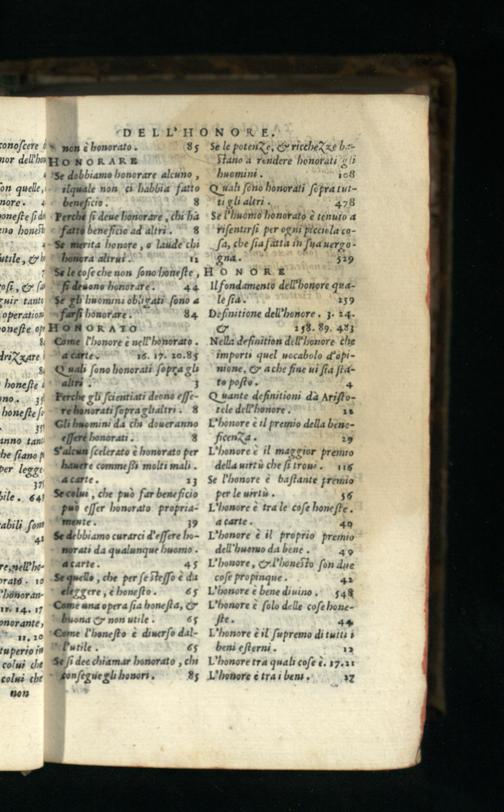 DELL'HONORE.
non è honorato. 85
HONORARE
Se dobbiamo honorare alcuno,
ilquale non ci habbia fatto
beneficio. 8
Perche si deue honorare, chi hà
fatto beneficio ad altri. 8
Se merita honore, o laude chi
honora altrui. 12
Se le cose che non sono honeste,
si deuono honorare. 44
Se gli huomini obligati sono a
farsi honorare. 84
HONORATO
Come l'honore è nell'honorato.
a carte. 16. 17. 20.85
Quali sono honorati sopra gli
altri. 3
Perche gli scientiati deono esse-
re honorati sopra gli altri. 8
Gli huomini da chi doueranno
essere honorati. 8
S'alcun scelerato è honorato per
hauere commessi molti mali.
a carte. 23
Se colui, che può far beneficio
può esser honorato propria-
mente. 39
Se debbiamo curarci d'essere ho-
norati da qualunque huomo.
a carte. 45
Se quello, che per se stesso è da
eleggere, è honesto. 65
Come una opera sia honesta, &
buona & non utile. 65
Come l'honesto è diuerso dal-
l'utile. 65
Se si dee chiamar honorato, chi
consegue gli honori. 85
Se le potenze, & ricchezze ba-
stano a rendere honorati gli
huomini. 108
Quali sono honorati sopra tut-
ti gli altri. 478
Se l'huomo honorato è tenuto a
risentirsi per ogni picciola co-
sa, che sia fatta in sua uergo-
gna. 529
HONORE
Il fondamento dell'honore qua-
le sia. 259
Definitione dell'honore. 3. 24.
& 258. 89. 483
Nella definition dell'honore che
importi quel uocabolo d'opi-
nione, & a che fine ui sia sta-
to posto. 4
Quante definitioni dà Aristo-
tele dell'honore. 22
L'honore è il premio della bene-
ficenza. 29
L'honore è il maggior premio
della uirtù che si troui. 116
Se l'honore è bastante premio
per le uirtù. 56
L'honore è tra le cose honeste.
a carte. 40
L'honore è il proprio premio
dell'huomo da bene. 40
L'honore, & l'honesto son due
cose propinque. 42
L'honore è bene diuino. 548
L'honore è solo delle cose hone-
ste. 44
L'honore è il supremo di tutti i
beni esterni. 12
L'honore tra quali cose è. 17.21
L'honore è tra i beni. 27